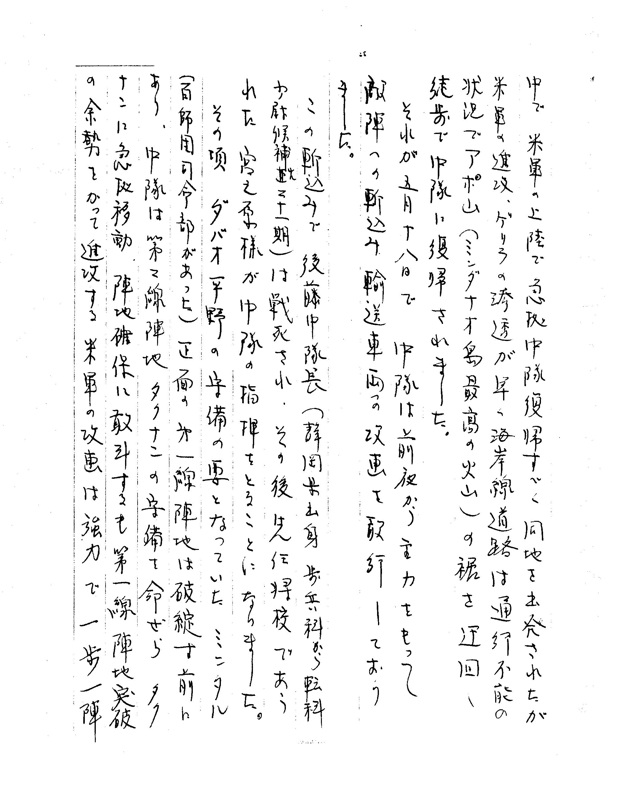 中で 米軍の上陸で 急拠中隊復帰すべく 同地を出発されたが
米軍の進攻、ゲリラの滲透が早く海岸線道路は通行不能の
状況でアポ山（ミンダナオ島最高の火山）の裾を迂回し
徒歩で中隊に復帰されました。
それが五月十八日で 中隊は前夜から主力をもって
敵陣への斬込み 輸送車両の攻撃を敢行しており
ました。
この斬込みで 後藤中隊長（静岡県出身 歩兵科から転科
少尉候補 二十一期）は戦死され、その後 先任将校であら
れた 宮之原様が中隊の指揮をとることになりました。
その頃 ダバオ平野の守備の要となっていた ミンタル
（百師団司令部があった）正面の 第一線陣地は破綻寸前に
あり、中隊は第二線陣地 タクナンの守備を命ぜら タク
ナンに急拠移動 陣地確保に敢斗するも 第一線陣地突破
の余勢をかって進攻する 米軍の攻撃は 強力で 一歩一陣